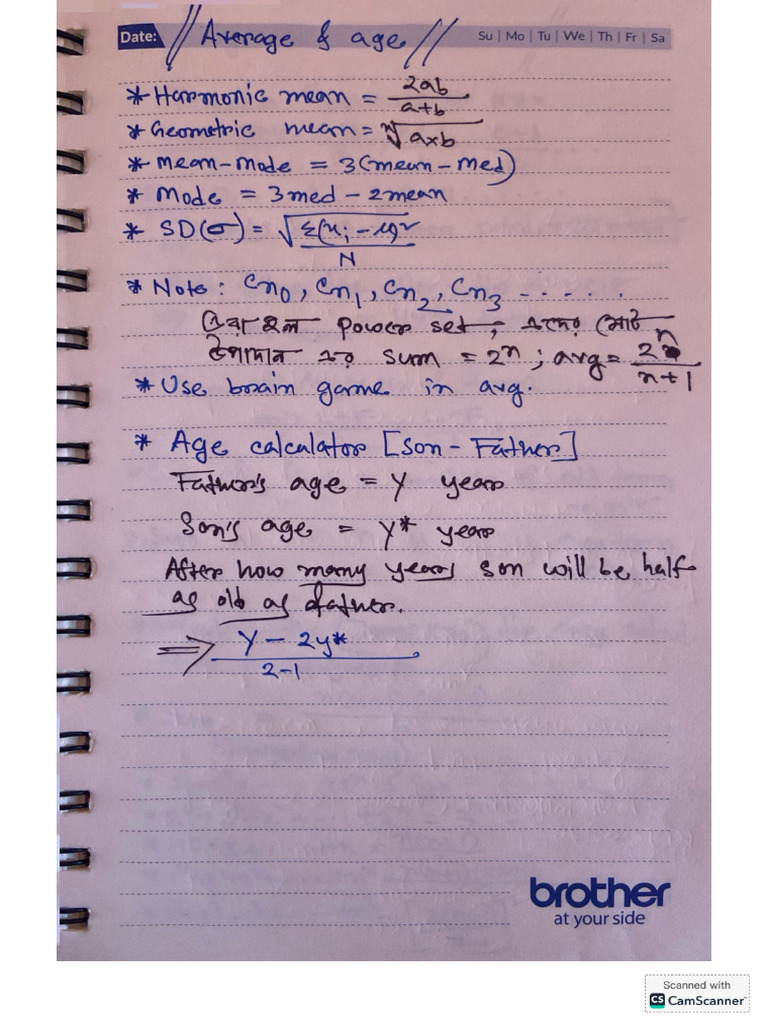 Date: // Average & age // Su | Mo | Tu | We | Th | Fr | Sa
* Harmonic mean = 2ab / a+b
* Geometric mean = ⁿ√axb
* Mean-Mode = 3(mean - med)
* Mode = 3med - 2mean
* SD(σ) = √Σ(xᵢ - μ)² / N
* Note: Cn₀, Cn₁, Cn₂, Cn₃ ......
power set, এদের মোট
উপাদান এর sum = 2ⁿ ; avg = 2ⁿ / n+1
* Use brain game in avg.
* Age calculator [son - Father]
Father's age = Y years
Son's age = Y* years
After how many years son will be half
as old as father.
⇒ Y - 2y* / 2-1
brother
at your side
Scanned with
CS CamScanner